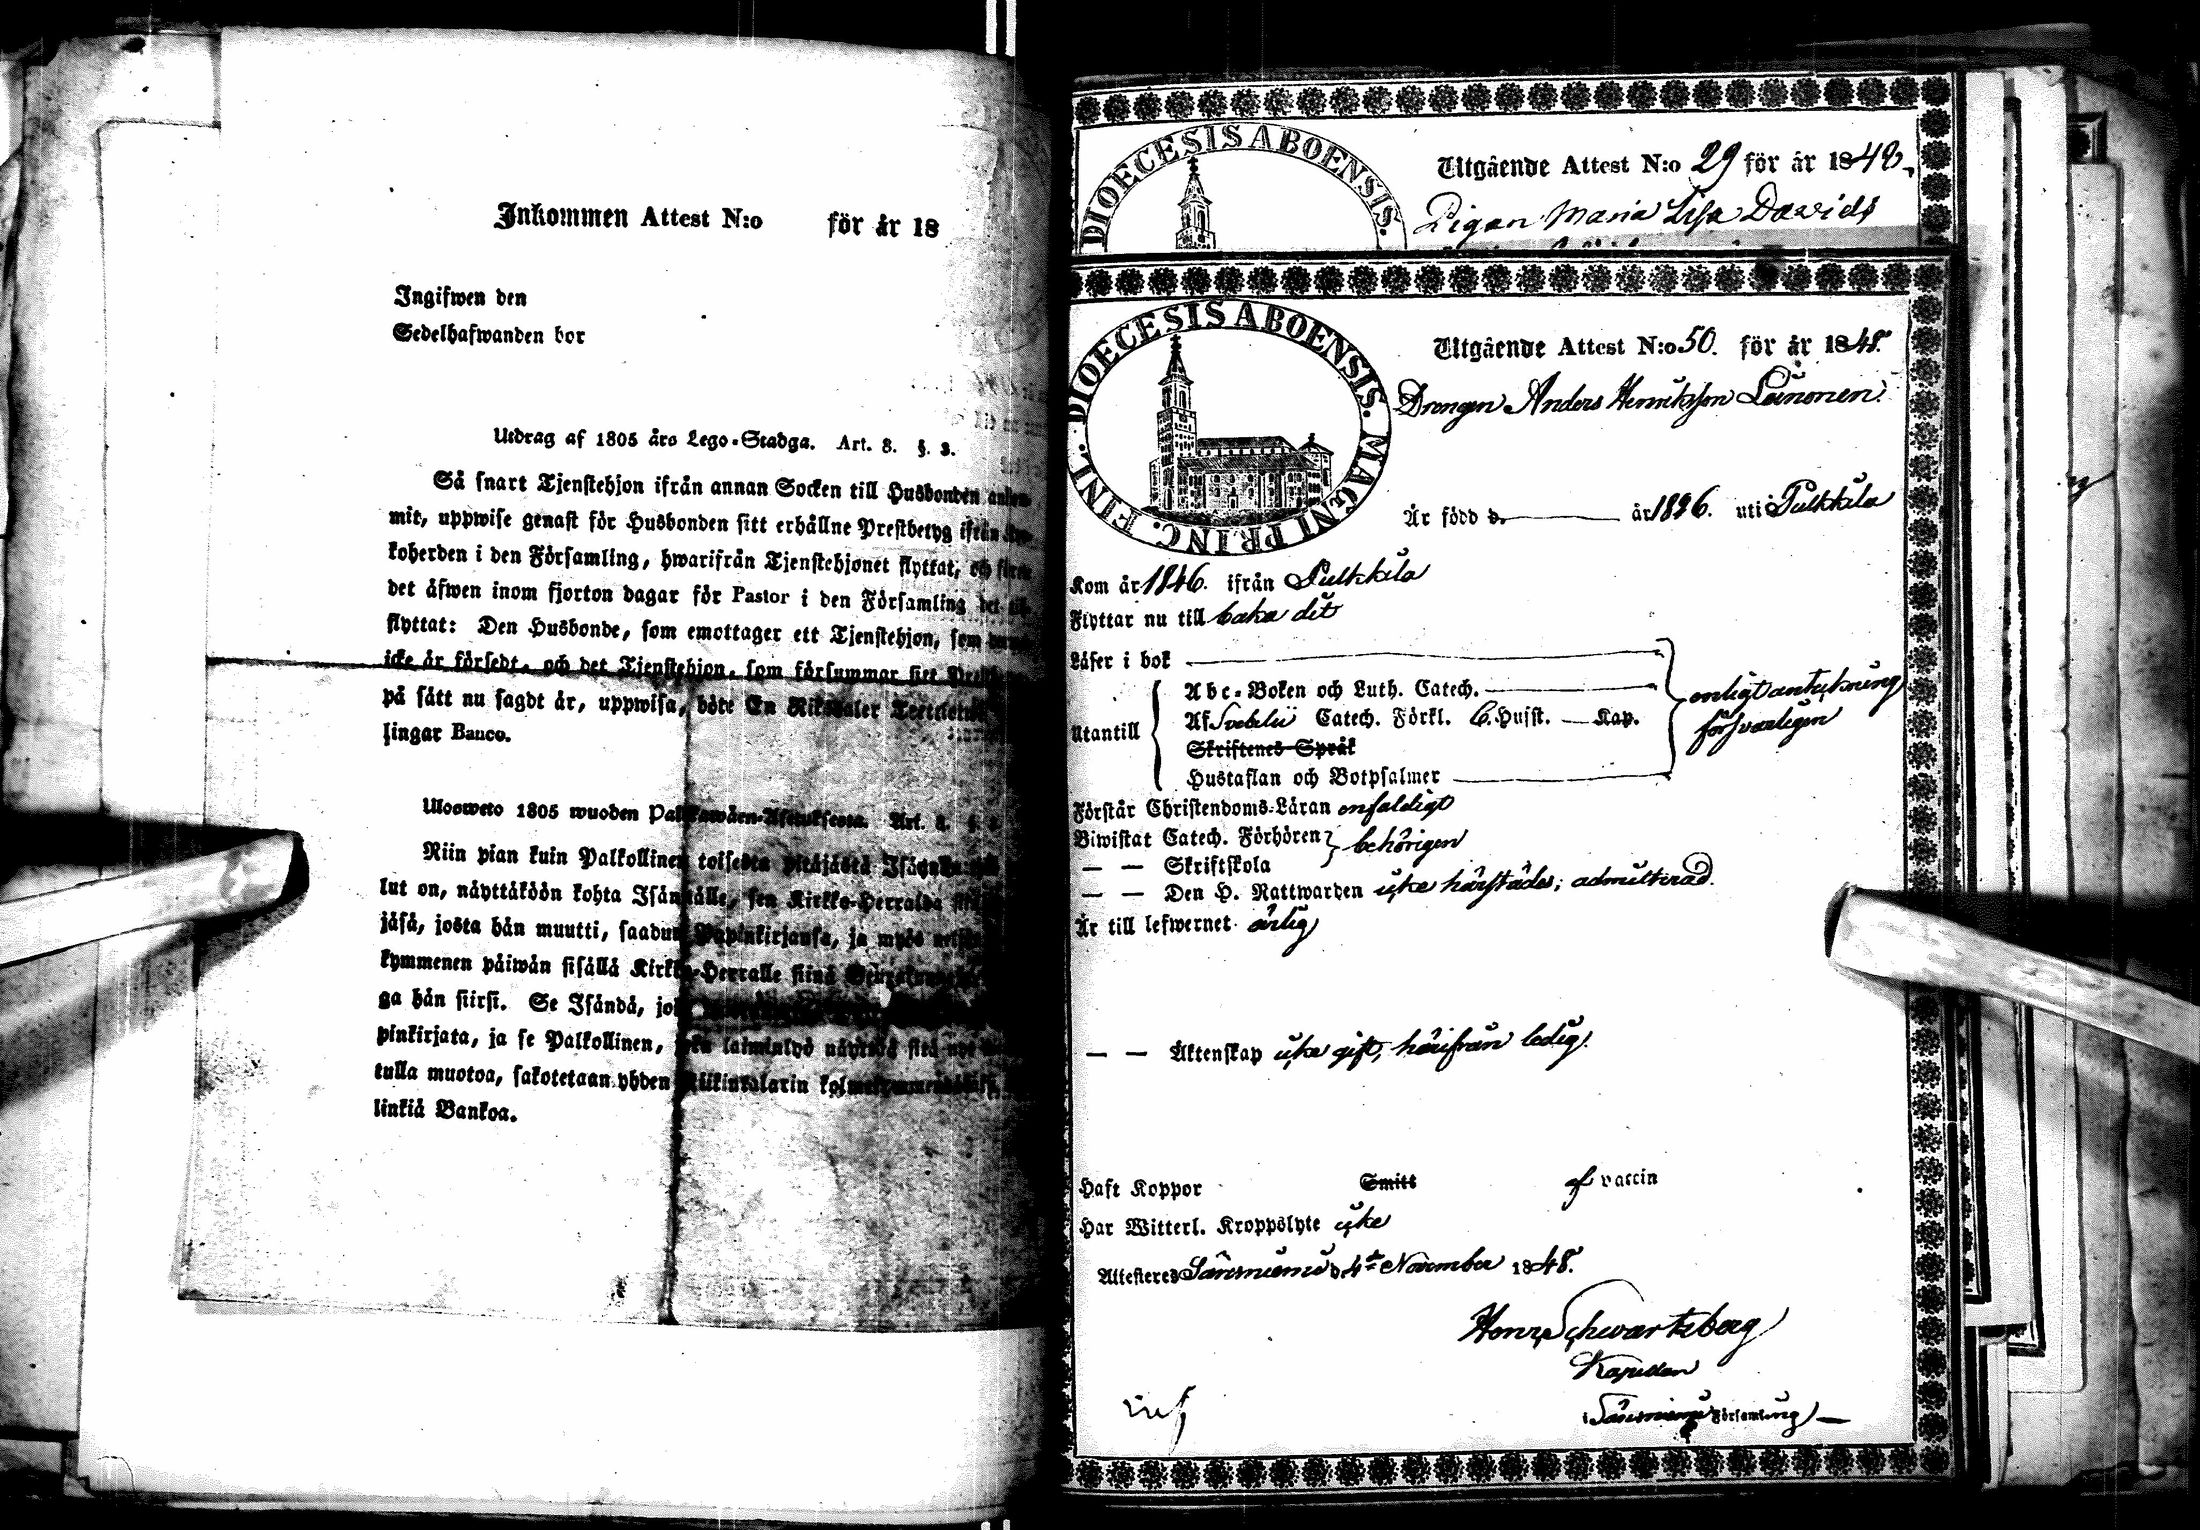 Inkommen Attest N:o för år 18
Ingifwen den
Sedelhafwanden bor
Utdrag af 1805 års Lego-Stadga. Art. 8. §. 3.
Så snart Tjenstehjon ifrån annan Socken till Husbonden
mit, uppwise genast för Husbonden sitt erhållne Prestbetyg ifrån
koherden i den Församling, hwarifrån Tjenstehjonet flyttat, och
det äfwen inom fjorton dagar för Pastor i den Församling det
flyttat: Den Husbonde, som emottager ett Tjenstehjon, som
icke är försedt, och det Tjenstehjon, som försummar sitt
på sätt nu sagdt är, uppwisa, böte En Riksdaler
lingar Banco.
Ulosweto 1805 wuoden Art.
Niin pian kuin Palkollinen toisesta pitäjästä
lut on, näyttäköön kohta Isännälle, sen Kirkko-Herralda
jäsä, josta hän muutti, saadun Papinkirjansa, ja myös
kymmenen päiwän sisällä Kirkko-Herralle siinä
ga hän siirsi. Se Isändä,
pinkirjata, ja se Palkollinen, laiminlyö näyttää sitä
tulla muotoa, sakotetaan yhden Riikintalarin
linkiä Bankoa.
DIOECESIS ABOENSIS.
Utgående Attest N:o 29 för år 1848.
Pigan Maria Lisa Davids
DIOECESIS ABOENSIS. MAGNI PRINC. FINL.
Utgående Attest N:o 50. för år 1848.
Drengen Anders Henriksson Leinonen.
Är född d. år 1826. uti Pulkkila
Kom år 1846. ifrån Pulkkila
Flyttar nu till baka dit
Läser i bok
Utantill
Abc-Boken och Luth. Catech.
Af Svebelii Catech. Förkl. C. Husft. Kap.
Skriftenes Språk
Hustaflan och Botpsalmer
enligt antekning
försvarligen
Förstår Christendoms-Läran enfaldigt
Biwistat Catech. Förhören
behörigen
— — Skriftskola
— — Den H. Nattwarden icke härstädes; admitterad.
Är till lefwernet ärlig
— — Äktenskap icke gift, härifrån ledig.
Haft Koppor Smitt af vaccin
Har Witterl. Kroppslyte icke
Attesteres Säresniemi d. 4de November 1848.
Henr. Schwartzberg
Kapellan
i Säresniemi Församling